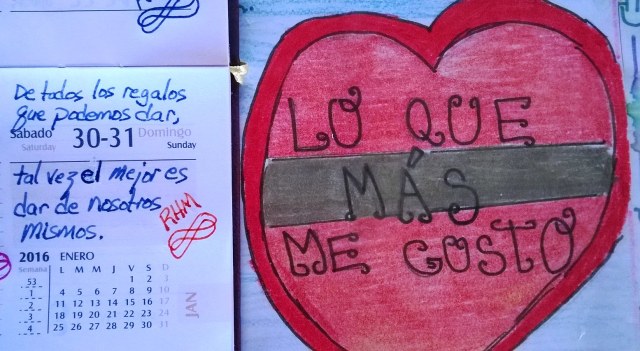 De todos los regalos
que podemos dar,
Sábado 30-31 Domingo
Saturday Sunday
tal vez el mejor es
dar de nosotros
mismos.
RHM
2016 ENERO
Semana L M M J V S D
53 1 2 3
1 4 5 6 7 8 9 10
2 11 12 13 14 15 16 17
3 18 19 20 21 22 23 24
4 25 26 27 28 29 30 31
JAN
LO QUE
MÁS
ME GUSTO